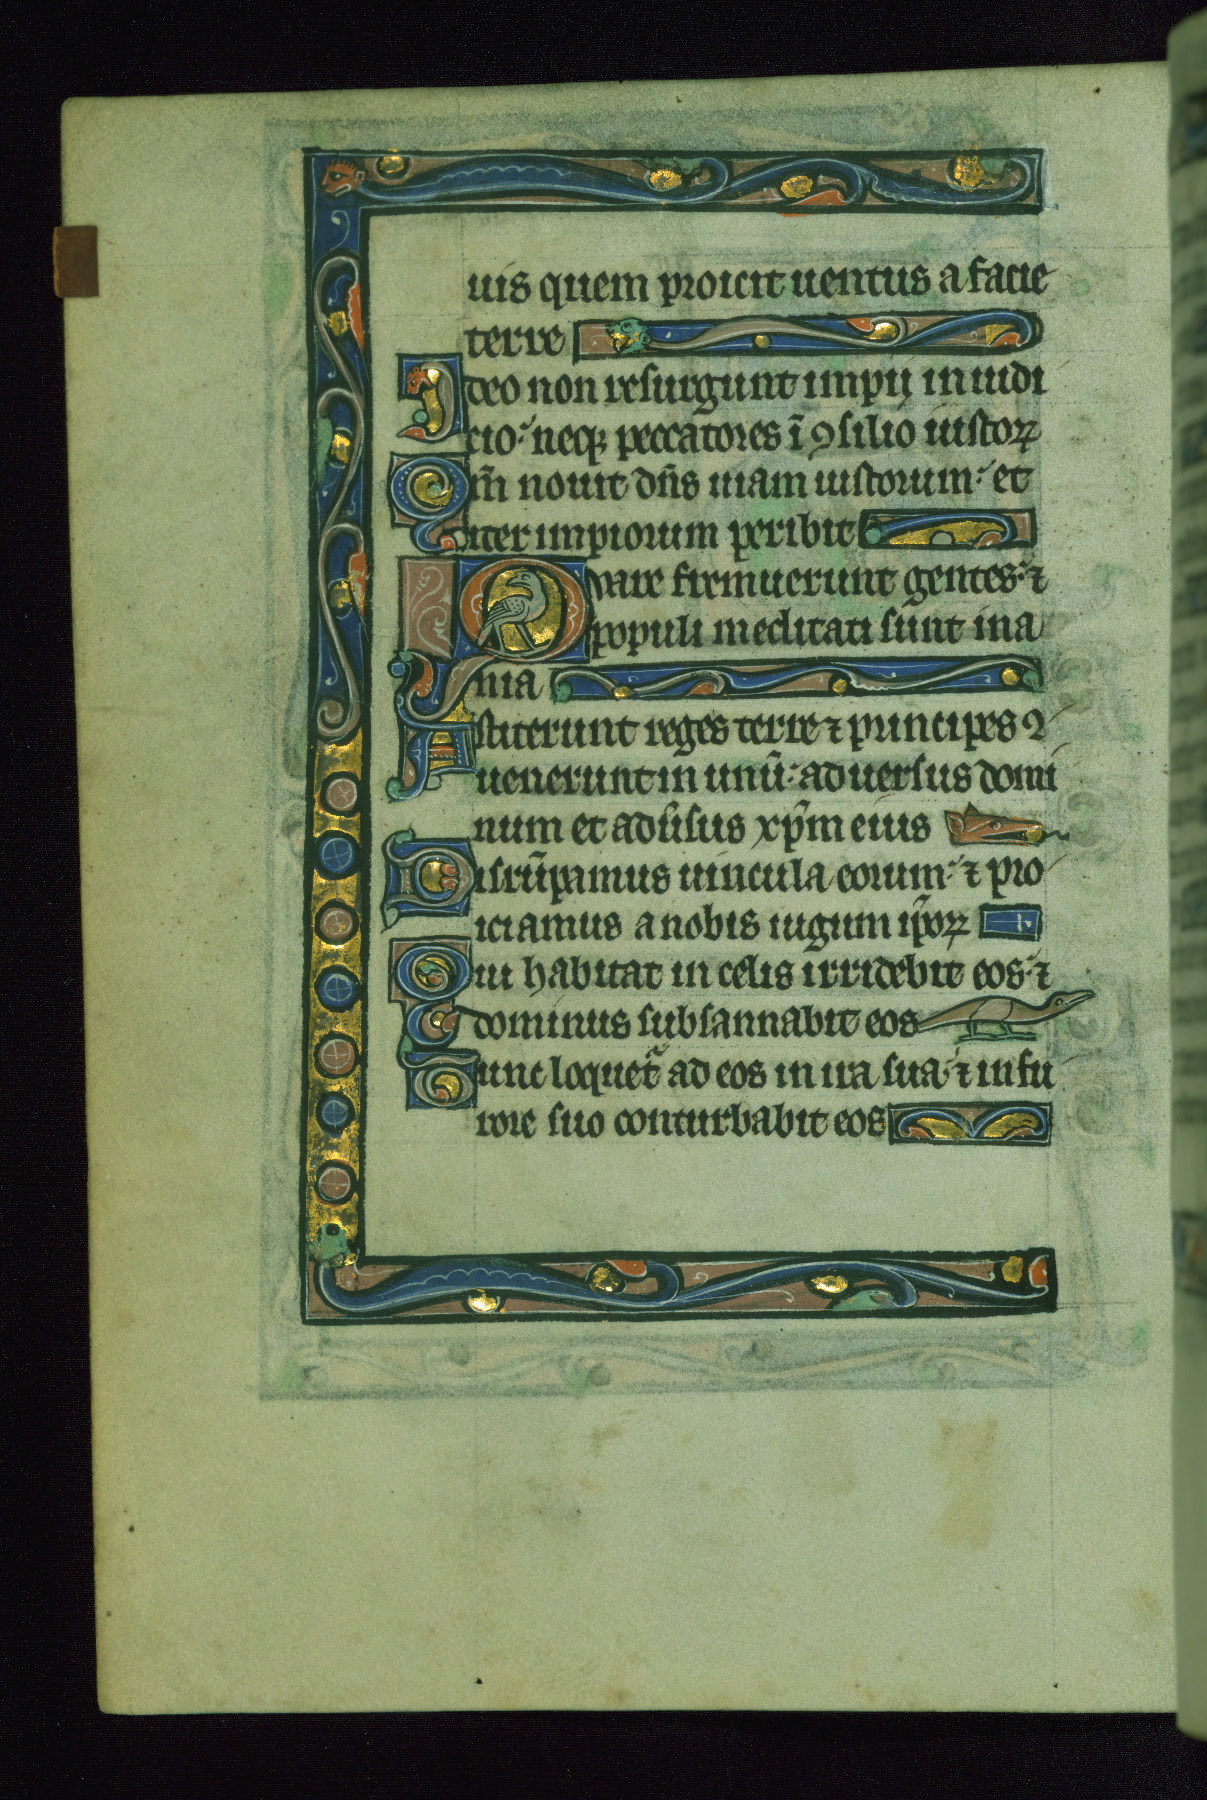 uis quem proicit uentus a facie
terre
Ideo non resurgunt impii in iudi
cio neq; peccatores ī ꝯsilio iustoꝝ
Qm̄ nouit dn̄s uiam iustorum et
iter impiorum peribit
Quare fremuerunt gentes ⁊
populi meditati sunt ina
nia
Astiterunt reges terre ⁊ principes ꝯ
uenerunt in unū aduersus domi
num et adūsus xp̄m eius
Disrūpamus uincula eorum ⁊ pro
iciamus a nobis iugum ip̄oꝝ
Qui habitat in celis irridebit eos ⁊
dominus subsannabit eos
Tunc loquet̄ ad eos in ira sua ⁊ in fu
rore suo conturbabit eos